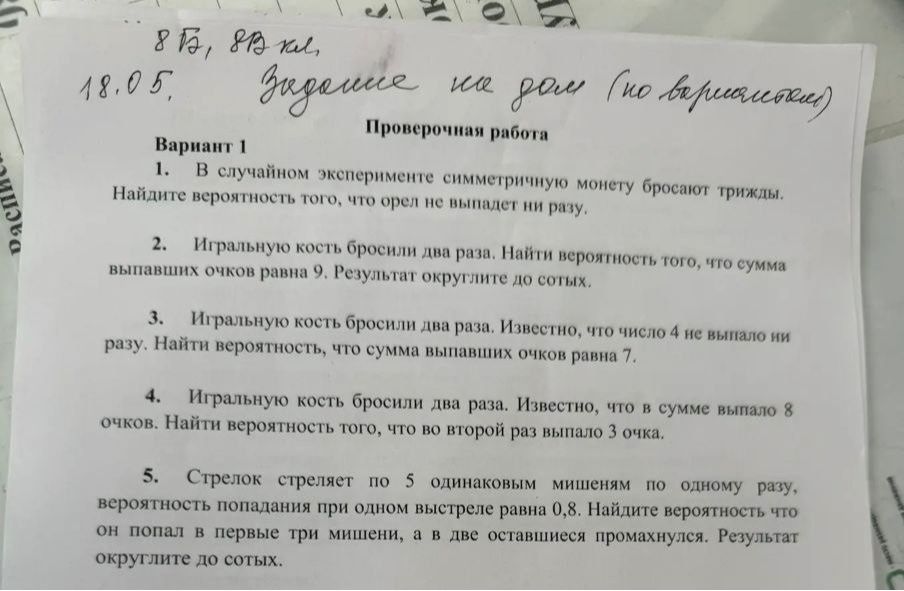 8Б, 8В кл.
18.05. Задание на дом (по вариантам)
Проверочная работа
Вариант 1
1. В случайном эксперименте симметричную монету бросают трижды.
Найдите вероятность того, что орел не выпадет ни разу.
2. Игральную кость бросили два раза. Найти вероятность того, что сумма
выпавших очков равна 9. Результат округлите до сотых.
3. Игральную кость бросили два раза. Известно, что число 4 не выпало ни
разу. Найти вероятность, что сумма выпавших очков равна 7.
4. Игральную кость бросили два раза. Известно, что в сумме выпало 8
очков. Найти вероятность того, что во второй раз выпало 3 очка.
5. Стрелок стреляет по 5 одинаковым мишеням по одному разу,
вероятность попадания при одном выстреле равна 0,8. Найдите вероятность что
он попал в первые три мишени, а в две оставшиеся промахнулся. Результат
округлите до сотых.